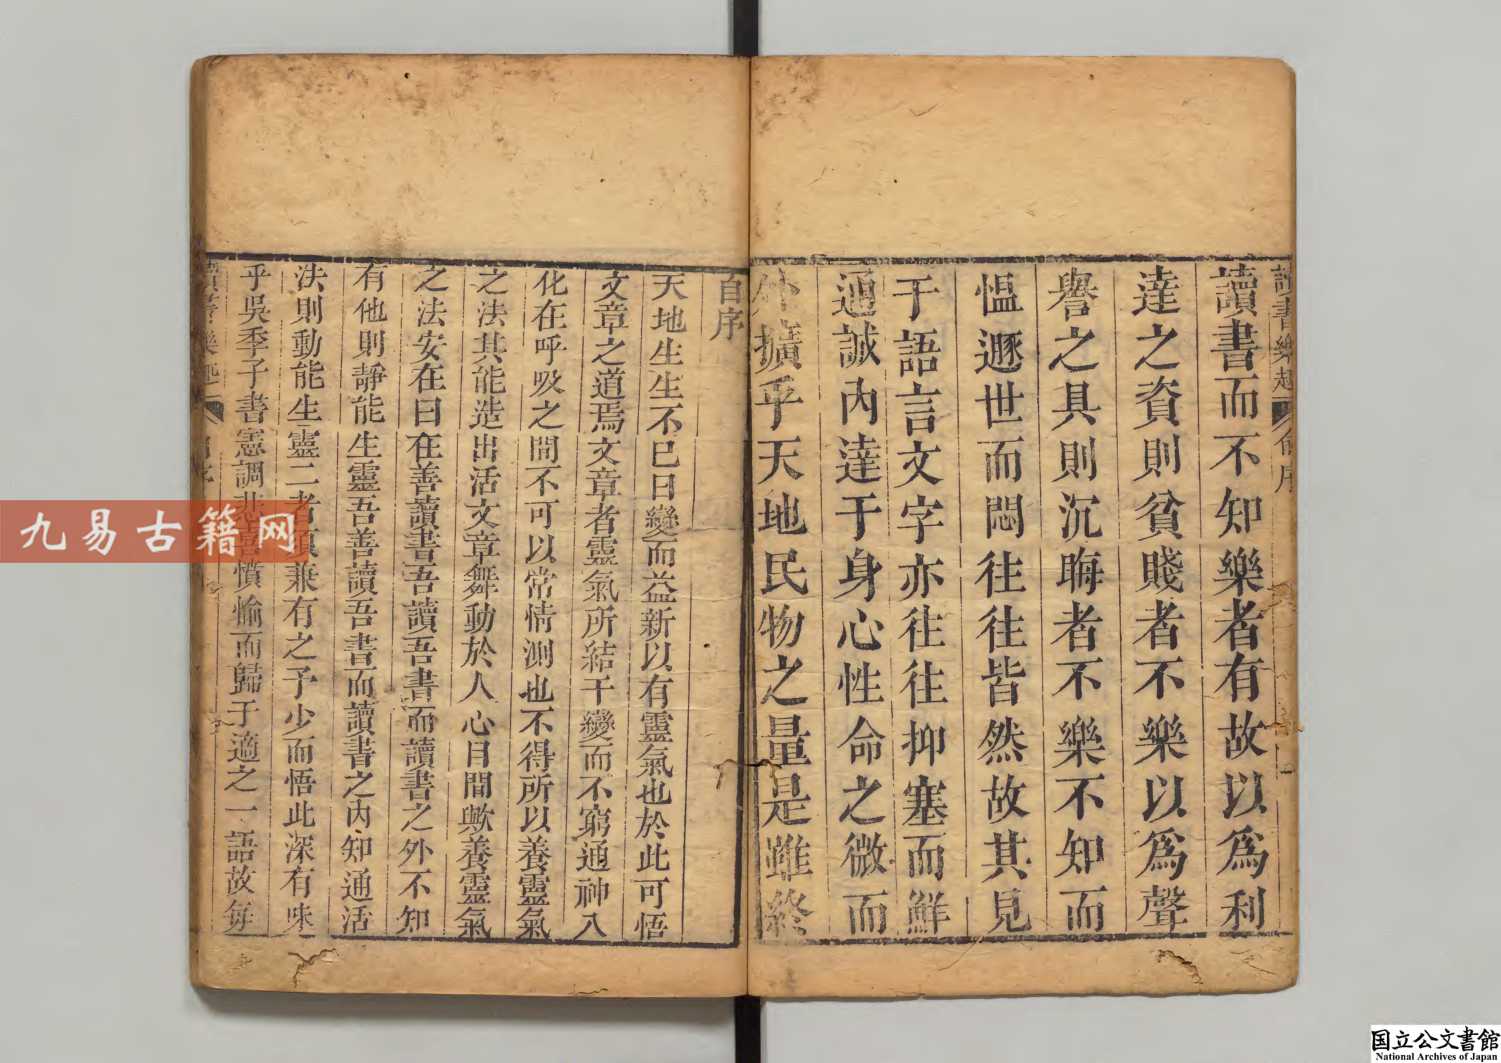 讀書樂趣
序
讀書而不知樂者有故以爲利
達之資則貧賤者不樂以爲聲
譽之具則沉晦者不樂不知而
愠遯世而悶往往皆然故其見
于語言文字亦往往抑塞而鮮
通誠內達于身心性命之微而
外擴乎天地民物之量是雖終
自序
天地生生不已日變而益新以有靈氣也於此可悟
文章之道焉文章者靈氣所結千變而不窮通神入
化在呼吸之間不可以常情測也不得所以養靈氣
之法其能造出活文章舞動於人心目間歟養靈氣
之法安在曰在善讀書吾讀吾書而讀書之外不知
有他則靜能生靈吾善讀吾書而讀書之內知通活
法則動能生靈二者須兼有之予少而悟此深有味
乎吳季子書憲調悲喜憤愉而歸于適之一語故每
讀書樂趣
九易古籍网
国立公文書館
National Archives of Japan